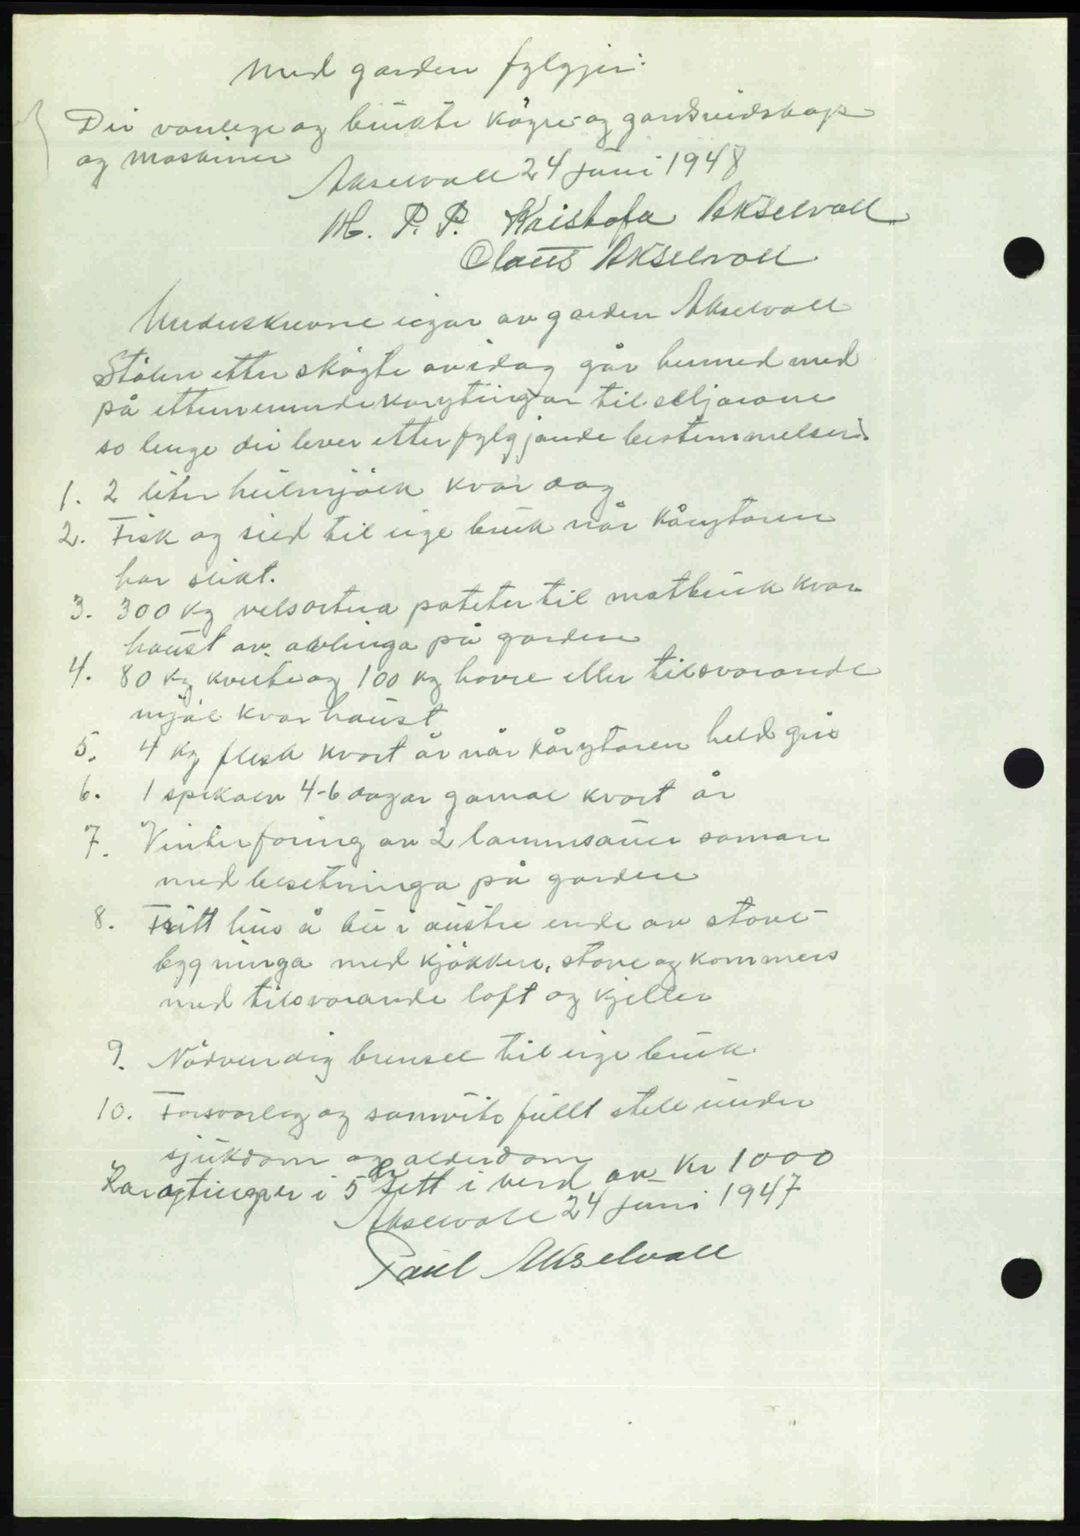 Med garden fylgjer:
Dei vanlege og brukte kögre og gardsreidskap
og maskiner
Akselvoll 24 juni 1948
M. P. P. Kristofa Akselvoll
Claus Akselvoll
Underskrevne eigar av garden Akselvoll
Stölen etter skögte av idag går hermed med
på etternemnde karytingar til seljarane
so lenge dei lever etter fylgjande bestemmelser:
1. 2 liter heilmjölk kvar dag
2. Fisk og sild til eige bruk når kårytaren
har slikt.
3. 300 kg velsortera poteter til matbruk kvar
haust av avlinga på garden
4. 80 kg kveite og 100 kg havre eller tilsvarande
mjöl kvar haust
5. 4 kg flesk kvart år når kårytaren held gris
6. 1 spekalv 4-6 dagar gamal kvart år
7. Vinterforing av 2 lammsauer saman
med besetninga på garden
8. Fritt hus å bu i austre ende av stove-
bygninga med kjökken, stove og kommers
med tilsvarande loft og kjeller
9. Nödvendig brensel til eige bruk
10. Forsvarleg og samvitsfullt stell under
sjukdom og alderdom
Karytingar i 5 år sett i verd av Kr 1000
Akselvoll 24 juni 1947
Paul Akselvoll